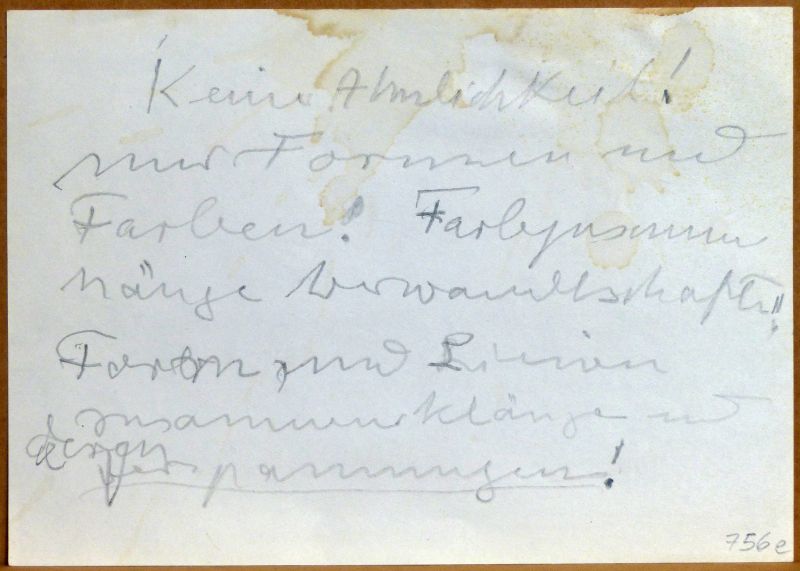 Keine Ahnlichkeit!
nur Formen und
Farben! Farbzusammen
hänge Verwandtschaften!!
Farben, und Linien
zusammenklänge und
deren
Verspannungen!
756e